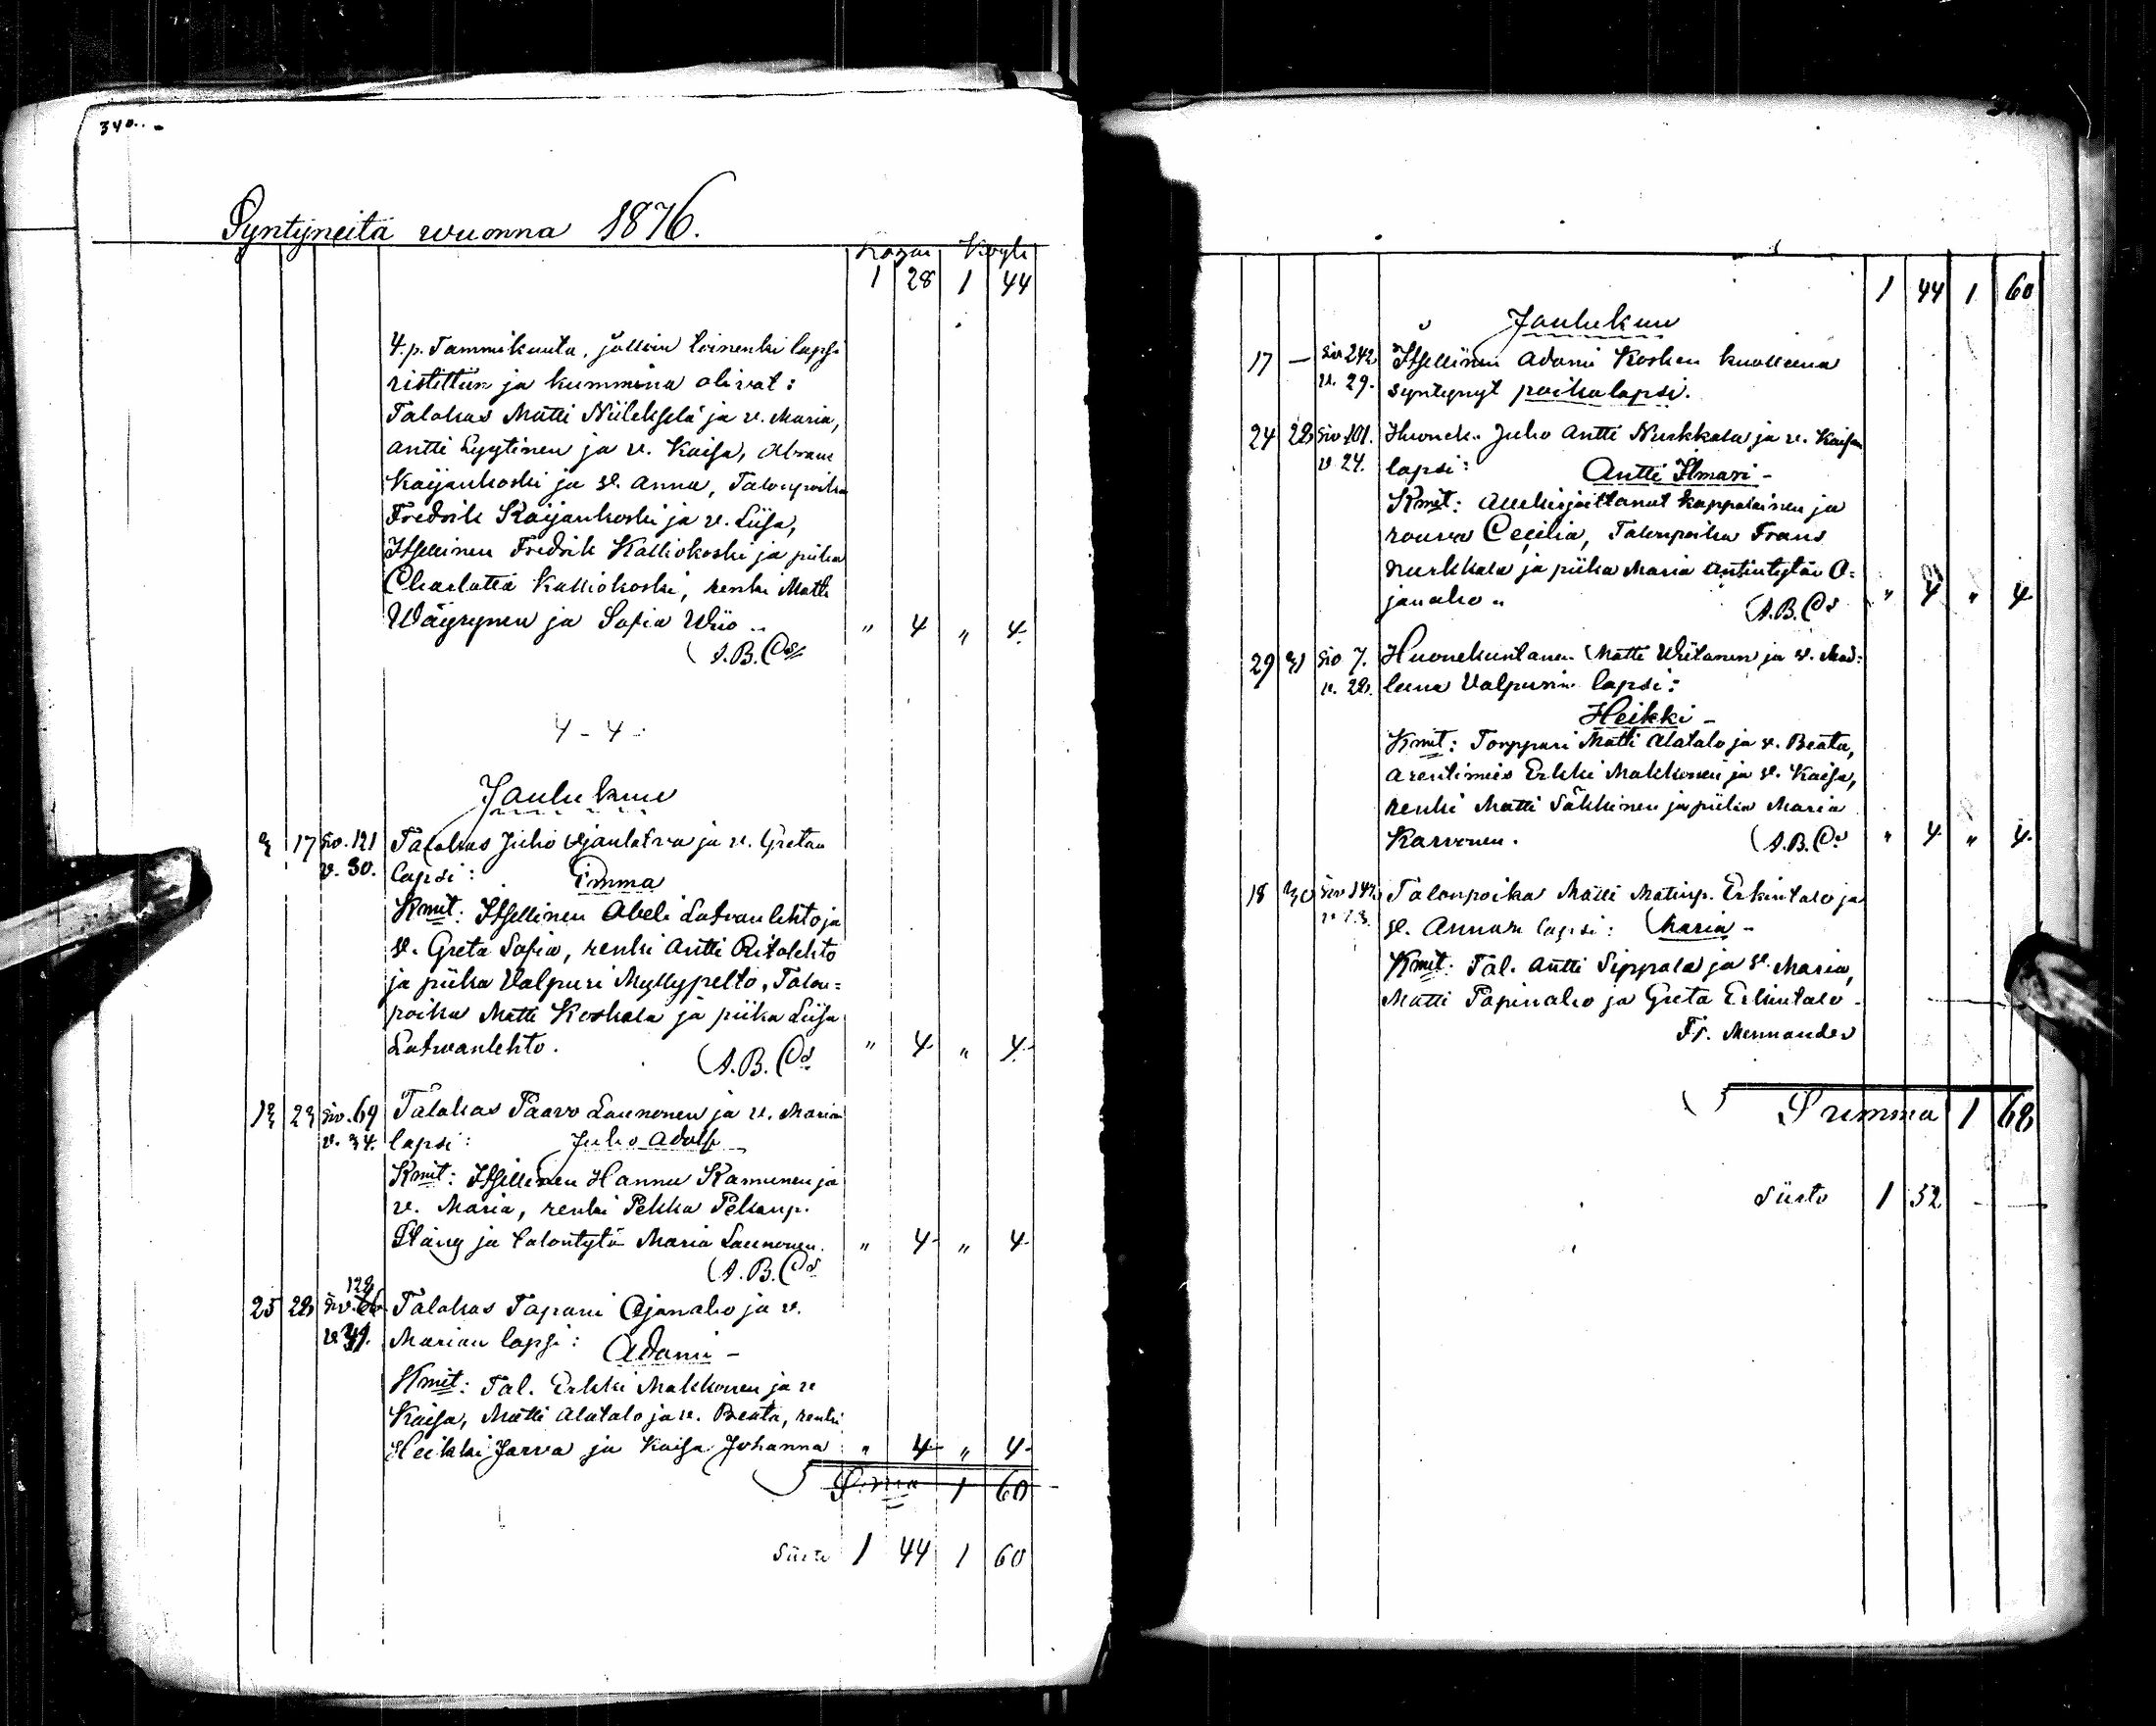 340.
Syntyneitä wuonna 1876.
1 28 1 44
4.p. Tammikuuta, jolloin toinenki lapsi
ristittiin ja kummina olivat:
Talokas Matti Niilekselä ja v. Maria,
Antti Lyytinen ja v. Kaisa, Abram
Kaijankoski ja v. Anna, Talonpoika
Fredrik Kaijankoski ja v. Liisa,
Itsellinen Fredrik Kalliokoski ja piika
Charlotta Kalliokoski, renki Matti
Wäyrynen ja Sofia Wiio „ 4 „ 4
A.B.
4-4
Joulukuu
3 17 siv. 121 Talokas Juho Ojanlatva ja v. Gretan
v. 30. lapsi: Emma
Kmit: Itsellinen Abeli Latvanlehto ja
v. Greta Sofia, renki Antti Ritolehto
ja piika Valpuri Myllypelto, Talon=
poika Matti Koskela ja piika Liisa
Latvanlehto. „ 4 „ 4
A.B.
13 23 siv. 69 Talokas Paavo Launonen ja v. Marian
v. 34. lapsi: Juho Adolf
Kmit: Itsellinen Hannu Kamunen ja
v. Maria, renki Pekka Pekanp.
Stång ja talontytö Maria Launonen. „ 4 „ 4
A.B.
128
25 28 siv. Talokas Tapani Ojanaho ja v.
Marian lapsi: Adami -
Kmit: Tal. Erkki Makkonen ja v
Kaisa, Matti Alatalo ja v. Beata, renki
Heikki Jarva ja Kaisa Johanna „ 4 „ 4
Summa 1 60
Siirto 1 44 1 60
1 44 1 60
Joulukuu
17 - siv 242 Itsellinen Adami Kosken kuolleena
v. 29. syntynyt poikalapsi.
24 28 siv 101. Huonek. Juho Antti Nurkkala ja v. Kaisan
v 24. lapsi: Antti Ilmari -
Kmit: Allekirjoittanut kappalainen ja
rouva Cecilia, Talonpoika Frans
Nurkkala ja piika Maria Antintytär O=
janaho „ „ 4 „ 4
A.B.
29 31 siv 7. Huonekuntanen Matti Wiitanen ja v. Mad=
v. 28. leena Valpurin lapsi:
Heikki -
Kmit: Torppari Matti Alatalo ja v. Beata,
arentimies Erkki Makkonen ja v. Kaisa,
renki Matti Säkkinen ja piika Maria
Karvonen. „ 4 „ 4
A.B.
18 30 siv Talonpoika Matti Matinp. Erkintalo ja
v. Annan lapsi: Maria -
Kmit: Tal. Antti Sippola ja v. Maria,
Matti Papinaho ja Greta Erkintalo.
Fr. Mennander
Summa 1 68
Siirto 1 52